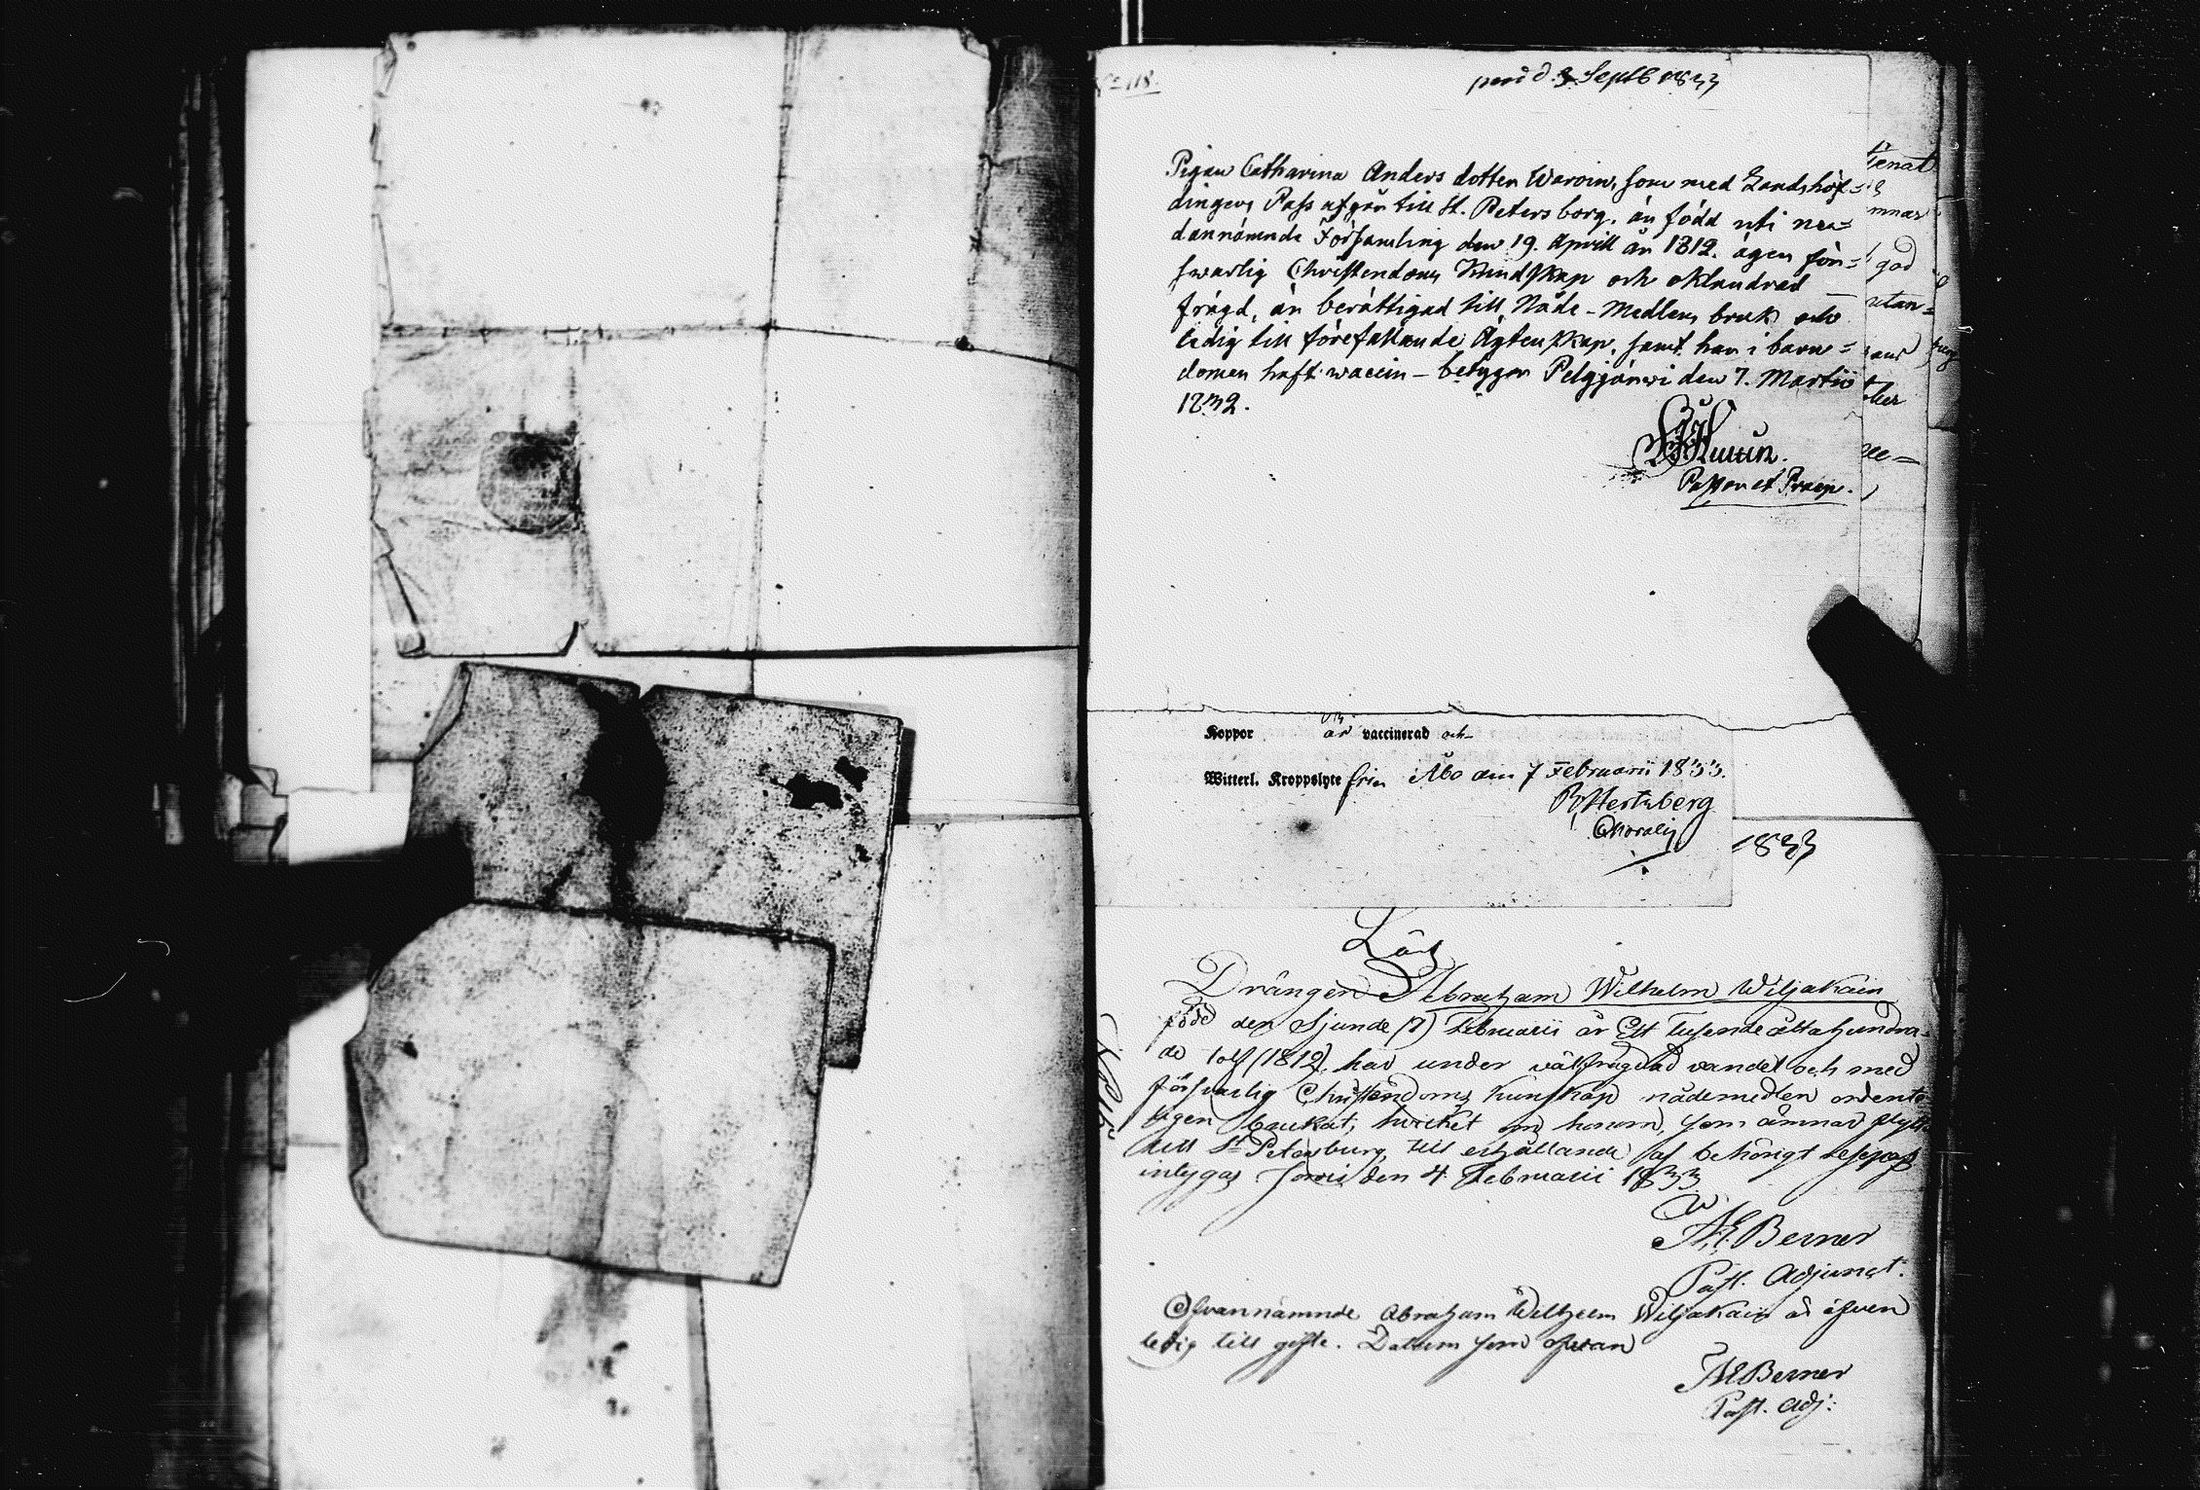 No 118.
prod d. 3 Septb 1833
Pigan Catharina Anders dotter Waroin, som med Landshöf=
dingens Pass afgår till St. Petersborg, är född uti ne=
dannämnde Församling den 19. Aprill år 1812. äger för=
swarlig Christendoms Kundskap och oklandrad
frägd, är berättigad till Nåde-Medlens bruk och
ledig till förefallande Ägtenskap, samt har i barn=
domen haft waccin – betygar Pelgjärwi den 7. Martii
1832.
Pastor et Præp.
Koppor är vaccinerad och
Witterl. Kroppslyte fri. Åbo den 7 Februarii 1833.
Hertzberg
1833
Drängen Abraham Wilhelm Wiljakain
född den Sjunde (7) Februarii år Ett Tusende åttahundra-
de tolf (1812), har under välfrägdad vandel och med
försvarlig Christendoms kunskap nådemedlen ordent-
ligen brukat; hvilket om honom, som ämnar flytta
till St Petersburg, till erhållande af behörigt resepass
intygas Jorois den 4 Februarii 1833
Berner
Past. Adjunct.
Ofvannämnde Abraham Wilhelm Wiljakain är äfven
ledig till gifte. Datum som ofvan
Berner
Past. Adj: